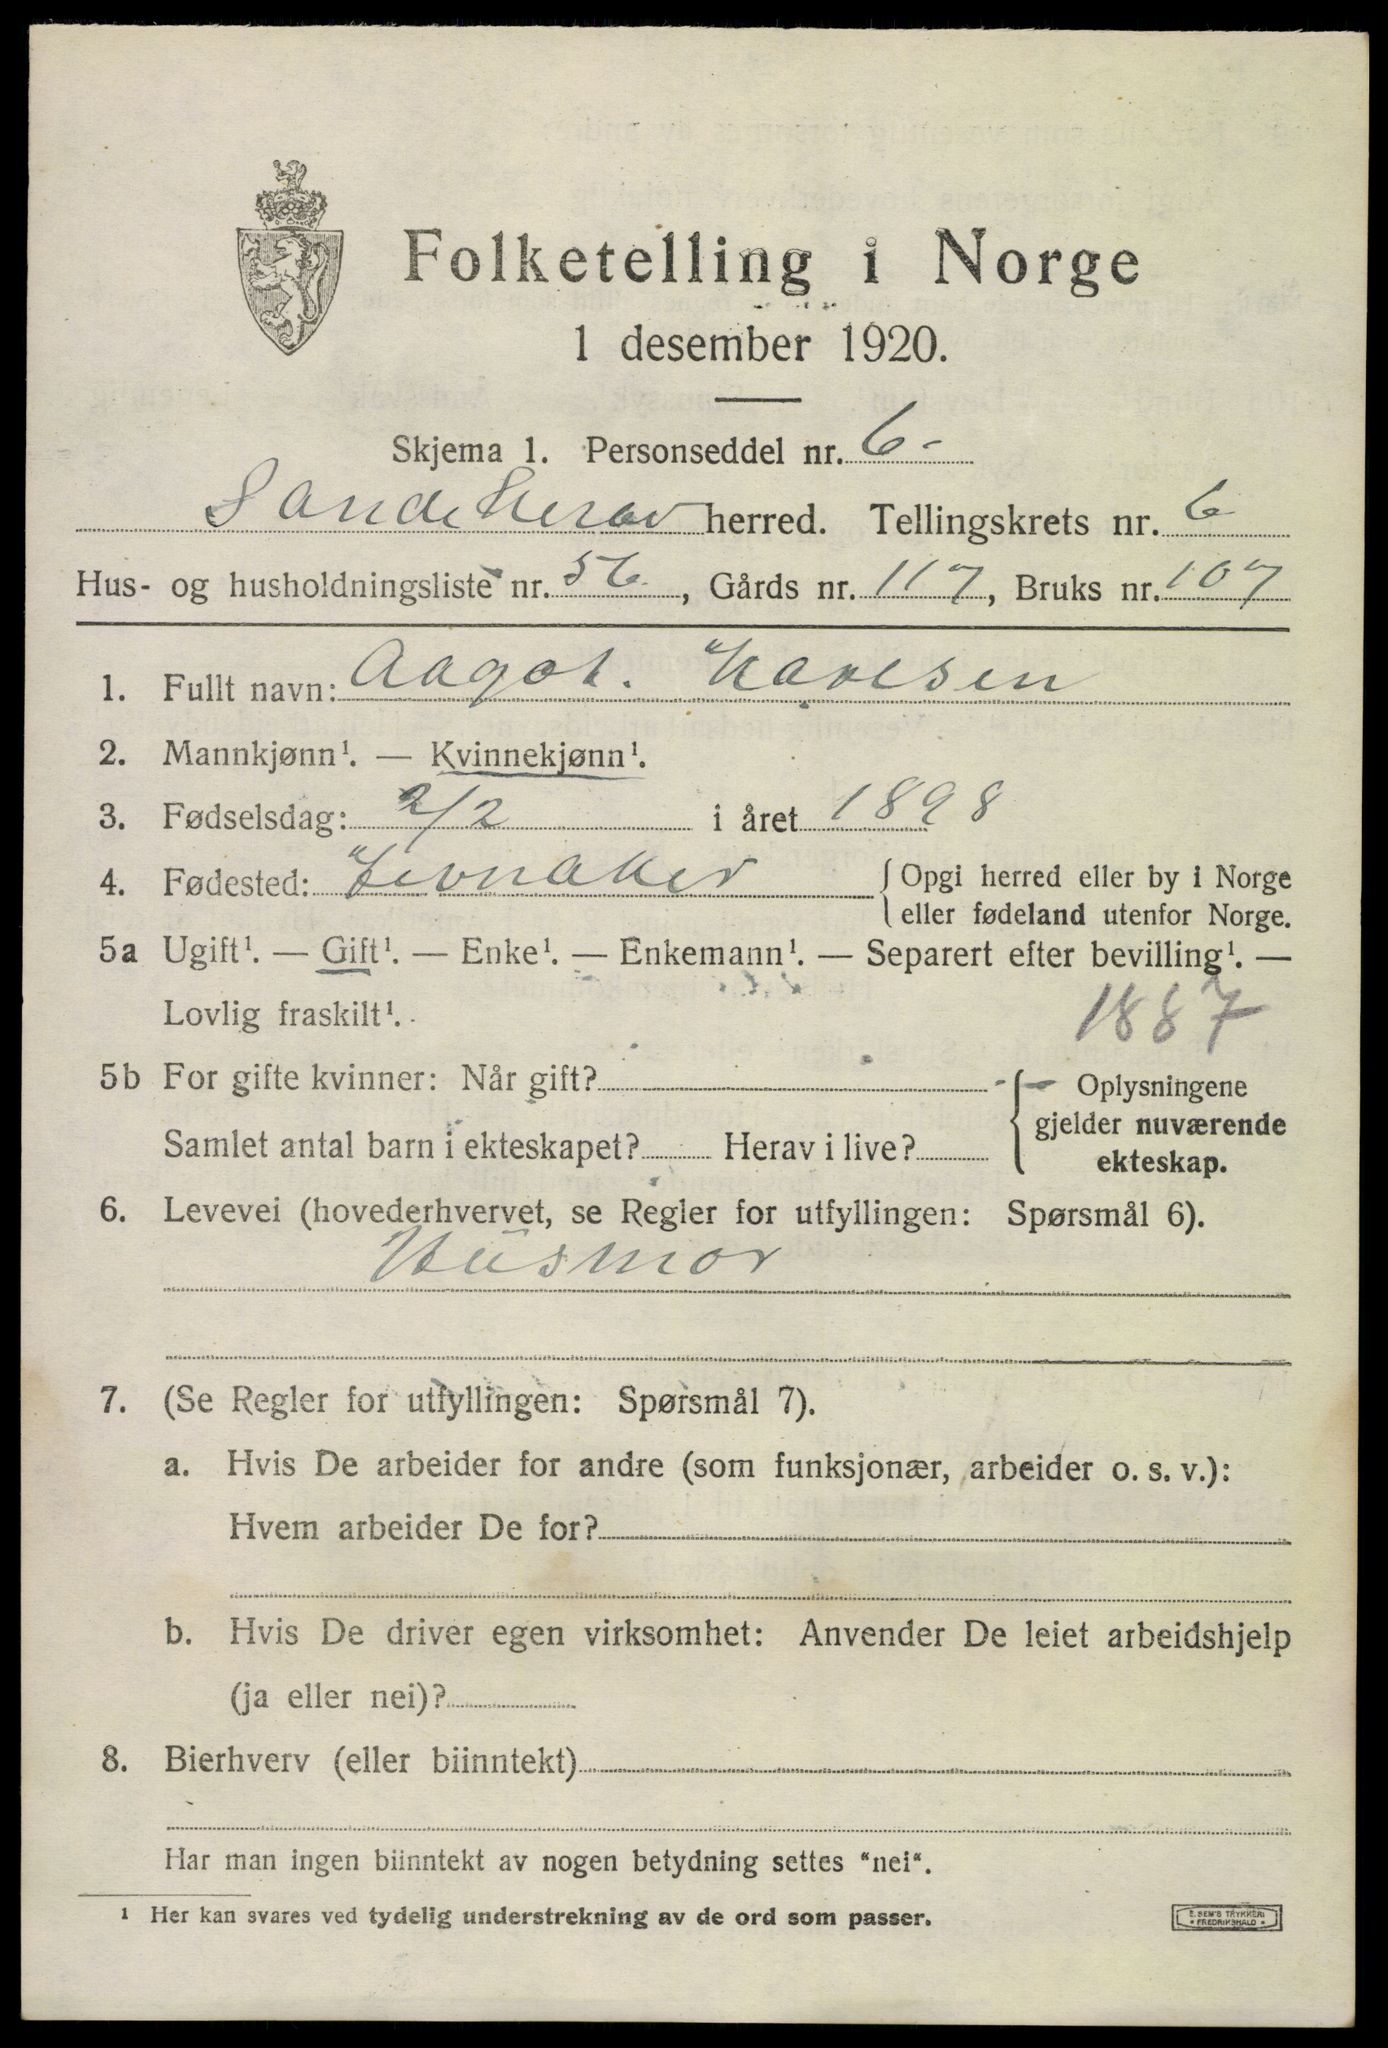 Folketelling i Norge
1 desember 1920.
Skjema 1. Personseddel nr. 6-
Sandeherav herred. Tellingskrets nr. 6
Hus- og husholdningsliste nr. 56, Gårds nr. 117, Bruks nr. 107
1. Fullt navn: Aagot. Karlsen
2. Mannkjønn¹. — Kvinnekjønn¹.
3. Fødselsdag: 2/2 i året 1898
4. Fødested: Jevnaker { Opgi herred eller by i Norge
eller fødeland utenfor Norge.
5a Ugift¹. — Gift¹. — Enke¹. — Enkemann¹. — Separert efter bevilling¹. —
Lovlig fraskilt¹. 1887
5b For gifte kvinner: Når gift? { Oplysningene
gjelder nuværende
Samlet antal barn i ekteskapet? Herav i live?
ekteskap.
6. Levevei (hovederhvervet, se Regler for utfyllingen: Spørsmål 6).
Husmor
7. (Se Regler for utfyllingen: Spørsmål 7).
a. Hvis De arbeider for andre (som funksjonær, arbeider o. s. v.):
Hvem arbeider De for?
b. Hvis De driver egen virksomhet: Anvender De leiet arbeidshjelp
(ja eller nei)?
8. Bierhverv (eller biinntekt)
Har man ingen biinntekt av nogen betydning settes "nei".
¹ Her kan svares ved tydelig understrekning av de ord som passer.
E. SEM'S TRYKKERI
• FREDRIKSHALD •